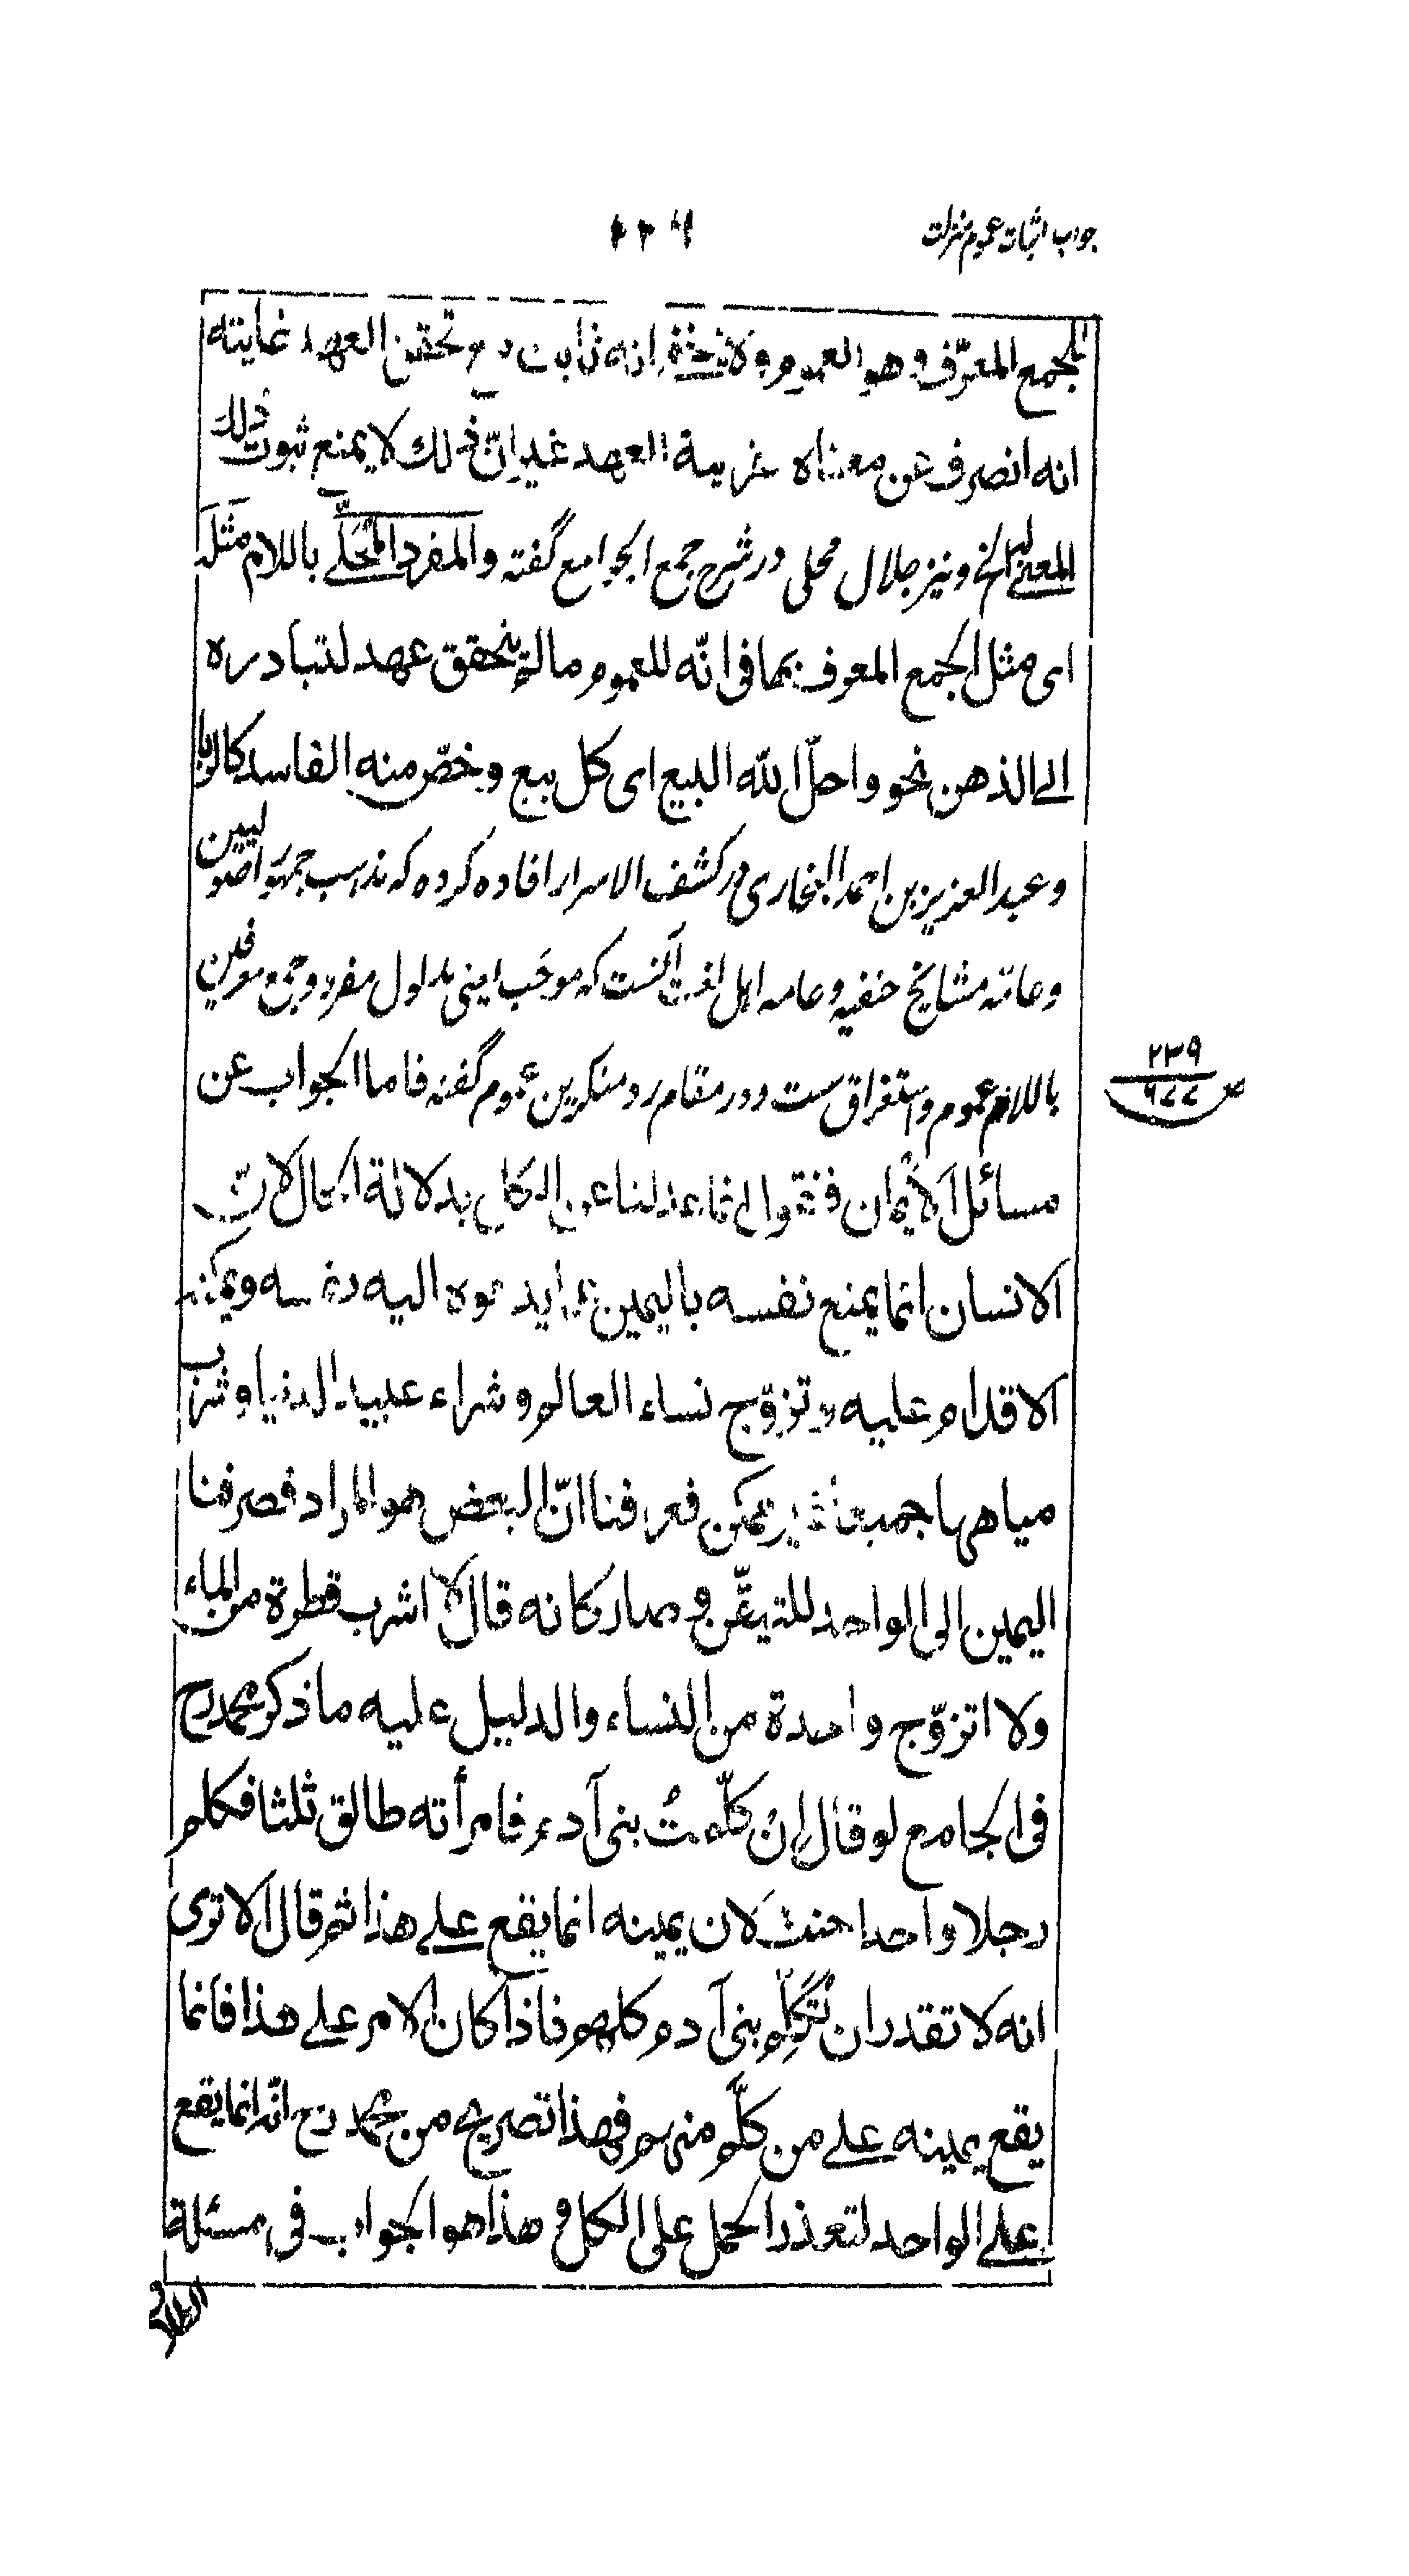 جواب اثبات عموم منزلت
الجمع المعرّف وهو العموم ولا يخفى انه ثابت مع تحقق العهد غايته
انه انصرف عن معناه لقرينة العهد غير انّ ذلك لا يمنع ثبوت ذلك
المعنى له الخ ونيز جلال محلى در شرح جمع الجوامع گفته والمفرد المحلّى باللام مثله
اى مثل الجمع المعرف بها فى انّه للعموم ما لم يتحقق عهد لتبادره
الى الذهن نحو واحلّ الله البيع اى كل بيع وخصّ منه الفاسد كالربا
وعبد العزيز بن احمد البخارى در كشف الاسرار افاده كرده كه مذهب جمهور اصوليين
وعامّه مشايخ حنفيه وعامه اهل لغت آنست كه موجَب يعنى مدلول مفرد وجمع معرفين
باللام عموم واستغراق ست ودر مقام رد منكرين عموم گفته فاما الجواب عن
مسائل الأيمان فنقول انما عدلنا عن الكل بدلالة الحال لانّ
الانسان انما يمنع نفسه باليمين عما يدعوه اليه نفسه ويمكنه
الاقدام عليه وتزوّج نساء العالم وشراء عبيد الدنيا وشرب
مياهها جميعا غير ممكن فعرفنا انّ البعض هو المراد فصرفنا
اليمين الى الواحد للتيقّن وصار كانه قال لا اشرب قطرة من الماء
ولا اتزوّج واحدة من النساء والدليل عليه ما ذكر محمد رح
فى الجامع لو قال ان كلّمتُ بنى آدم فامرأته طالق ثلثا فكلم
رجلا واحدا حنث لان يمينه انما يقع على هذا ثم قال الا ترى
انه لا تقدر ان تُكَلِّم بنى آدم كلهم فاذا كان الامر على هذا فانما
يقع يمينه على من كلّم منهم فهذا تصريح من محمد رح انّه انما يقع
على الواحد لتعذر الحمل على الكل وهذا هو الجواب فى مسئلة
۲۳۹
ص ۹۷۷